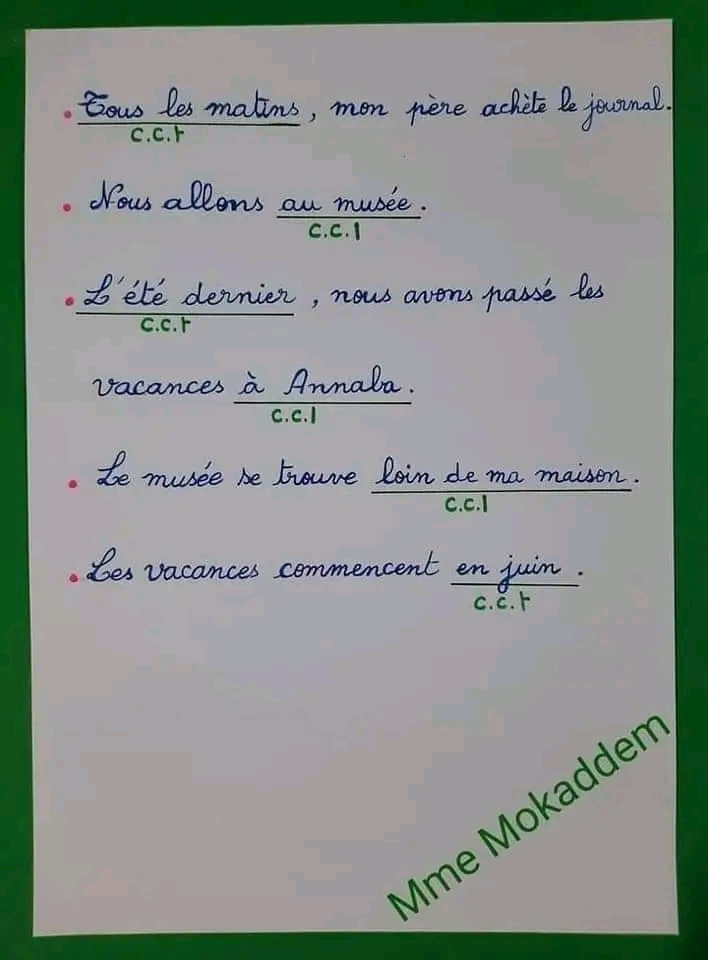 • Tous les matins, mon père achète le journal.
c.c.t
• Nous allons au musée.
c.c.l
• L'été dernier, nous avons passé les
c.c.t
vacances à Annaba.
c.c.l
• Le musée se trouve loin de ma maison.
c.c.l
• Les vacances commencent en juin.
c.c.t
Mme Mokaddem